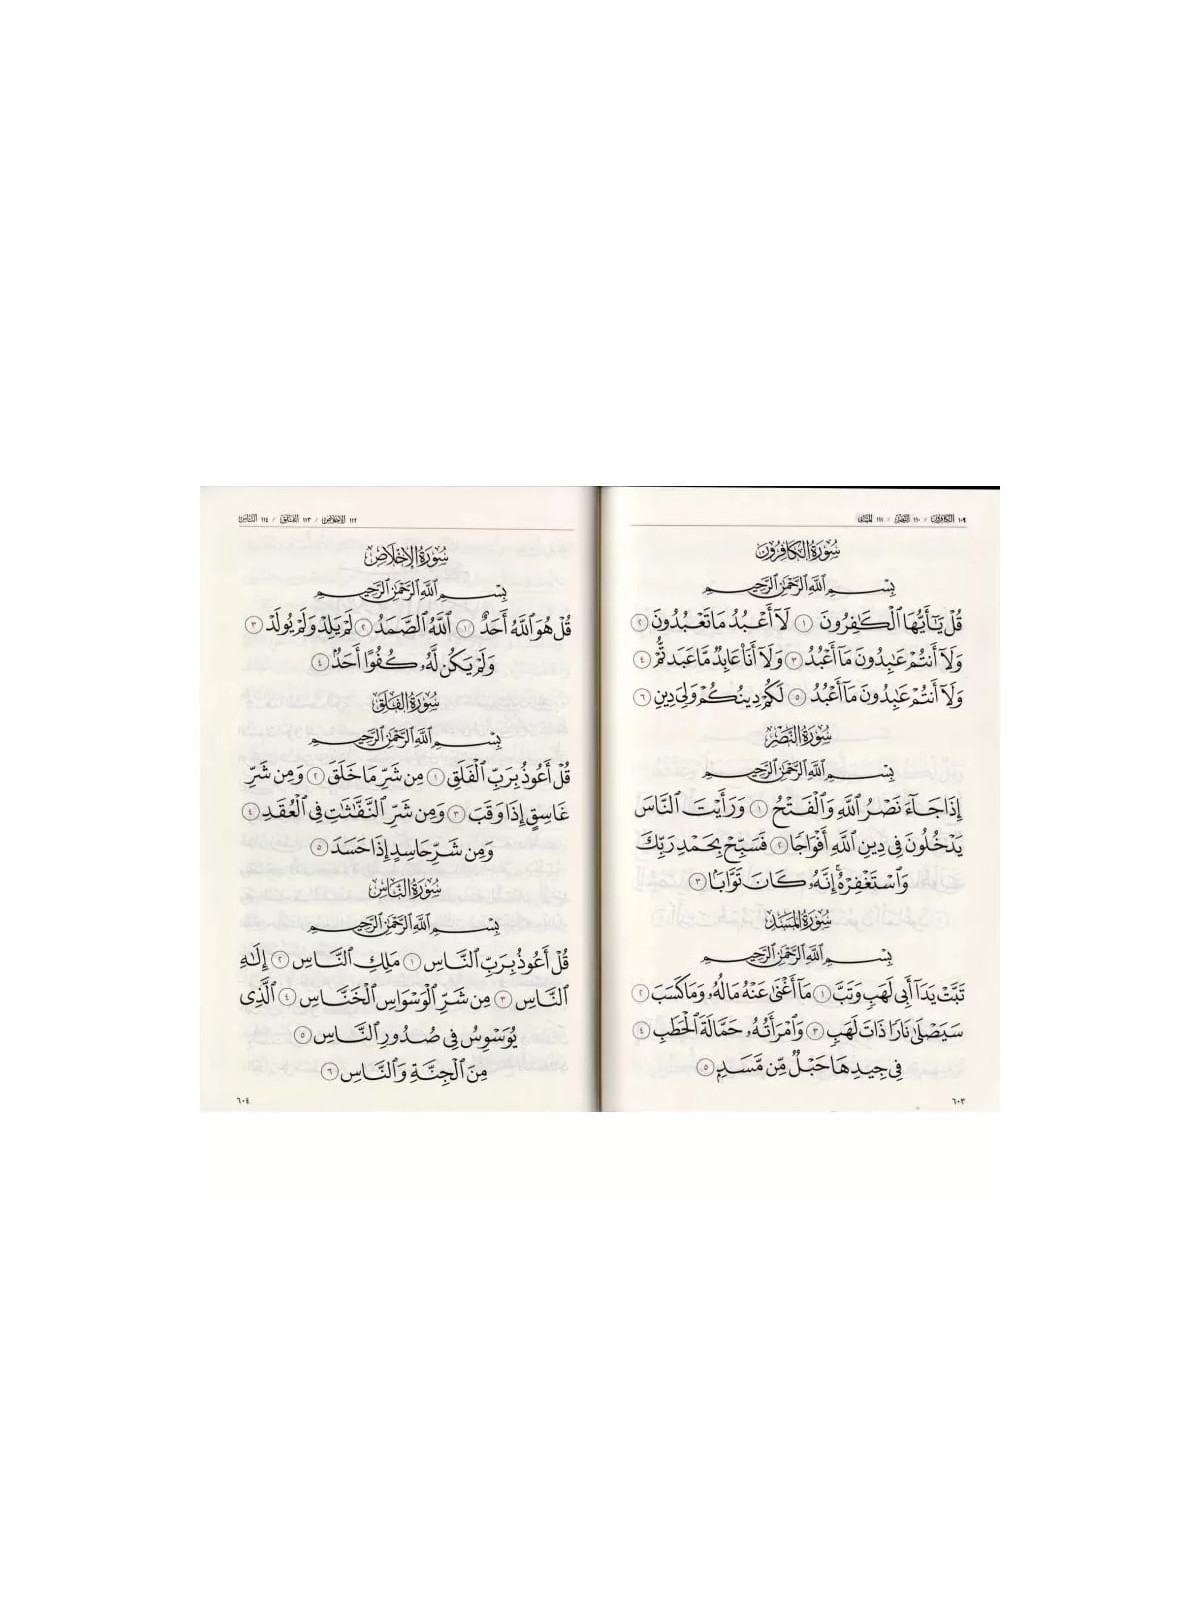 ١٠٩ الكافرون / ١١٠ النصر / ١١١ المسد
سُورَةُ الكَافِرُونَ
بِسْمِ ٱللَّهِ ٱلرَّحْمَٰنِ ٱلرَّحِيمِ
قُلْ يَٰٓأَيُّهَا ٱلْكَٰفِرُونَ ١ لَآ أَعْبُدُ مَا تَعْبُدُونَ ٢
وَلَآ أَنتُمْ عَٰبِدُونَ مَآ أَعْبُدُ ٣ وَلَآ أَنَا۠ عَابِدٌ مَّا عَبَدتُّمْ ٤
وَلَآ أَنتُمْ عَٰبِدُونَ مَآ أَعْبُدُ ٥ لَكُمْ دِينُكُمْ وَلِيَ دِينِ ٦
سُورَةُ النَّصْرِ
بِسْمِ ٱللَّهِ ٱلرَّحْمَٰنِ ٱلرَّحِيمِ
إِذَا جَآءَ نَصْرُ ٱللَّهِ وَٱلْفَتْحُ ١ وَرَأَيْتَ ٱلنَّاسَ
يَدْخُلُونَ فِي دِينِ ٱللَّهِ أَفْوَاجًا ٢ فَسَبِّحْ بِحَمْدِ رَبِّكَ
وَٱسْتَغْفِرْهُ ۚ إِنَّهُۥ كَانَ تَوَّابًۢا ٣
سُورَةُ المَسَدِ
بِسْمِ ٱللَّهِ ٱلرَّحْمَٰنِ ٱلرَّحِيمِ
تَبَّتْ يَدَآ أَبِي لَهَبٍ وَتَبَّ ١ مَآ أَغْنَىٰ عَنْهُ مَالُهُۥ وَمَا كَسَبَ ٢
سَيَصْلَىٰ نَارًا ذَاتَ لَهَبٍ ٣ وَٱمْرَأَتُهُۥ حَمَّالَةَ ٱلْحَطَبِ ٤
فِي جِيدِهَا حَبْلٌ مِّن مَّسَدٍۭ ٥
٦٠٣
١١٢ الإخلاص / ١١٣ الفلق / ١١٤ الناس
سُورَةُ الإِخْلَاصِ
بِسْمِ ٱللَّهِ ٱلرَّحْمَٰنِ ٱلرَّحِيمِ
قُلْ هُوَ ٱللَّهُ أَحَدٌ ١ ٱللَّهُ ٱلصَّمَدُ ٢ لَمْ يَلِدْ وَلَمْ يُولَدْ ٣
وَلَمْ يَكُن لَّهُۥ كُفُوًا أَحَدٌۢ ٤
سُورَةُ الفَلَقِ
بِسْمِ ٱللَّهِ ٱلرَّحْمَٰنِ ٱلرَّحِيمِ
قُلْ أَعُوذُ بِرَبِّ ٱلْفَلَقِ ١ مِن شَرِّ مَا خَلَقَ ٢ وَمِن شَرِّ
غَاسِقٍ إِذَا وَقَبَ ٣ وَمِن شَرِّ ٱلنَّفَّٰثَٰتِ فِي ٱلْعُقَدِ ٤
وَمِن شَرِّ حَاسِدٍ إِذَا حَسَدَ ٥
سُورَةُ النَّاسِ
بِسْمِ ٱللَّهِ ٱلرَّحْمَٰنِ ٱلرَّحِيمِ
قُلْ أَعُوذُ بِرَبِّ ٱلنَّاسِ ١ مَلِكِ ٱلنَّاسِ ٢ إِلَٰهِ
ٱلنَّاسِ ٣ مِن شَرِّ ٱلْوَسْوَاسِ ٱلْخَنَّاسِ ٤ ٱلَّذِي
يُوَسْوِسُ فِي صُدُورِ ٱلنَّاسِ ٥
مِنَ ٱلْجِنَّةِ وَٱلنَّاسِ ٦
٦٠٤